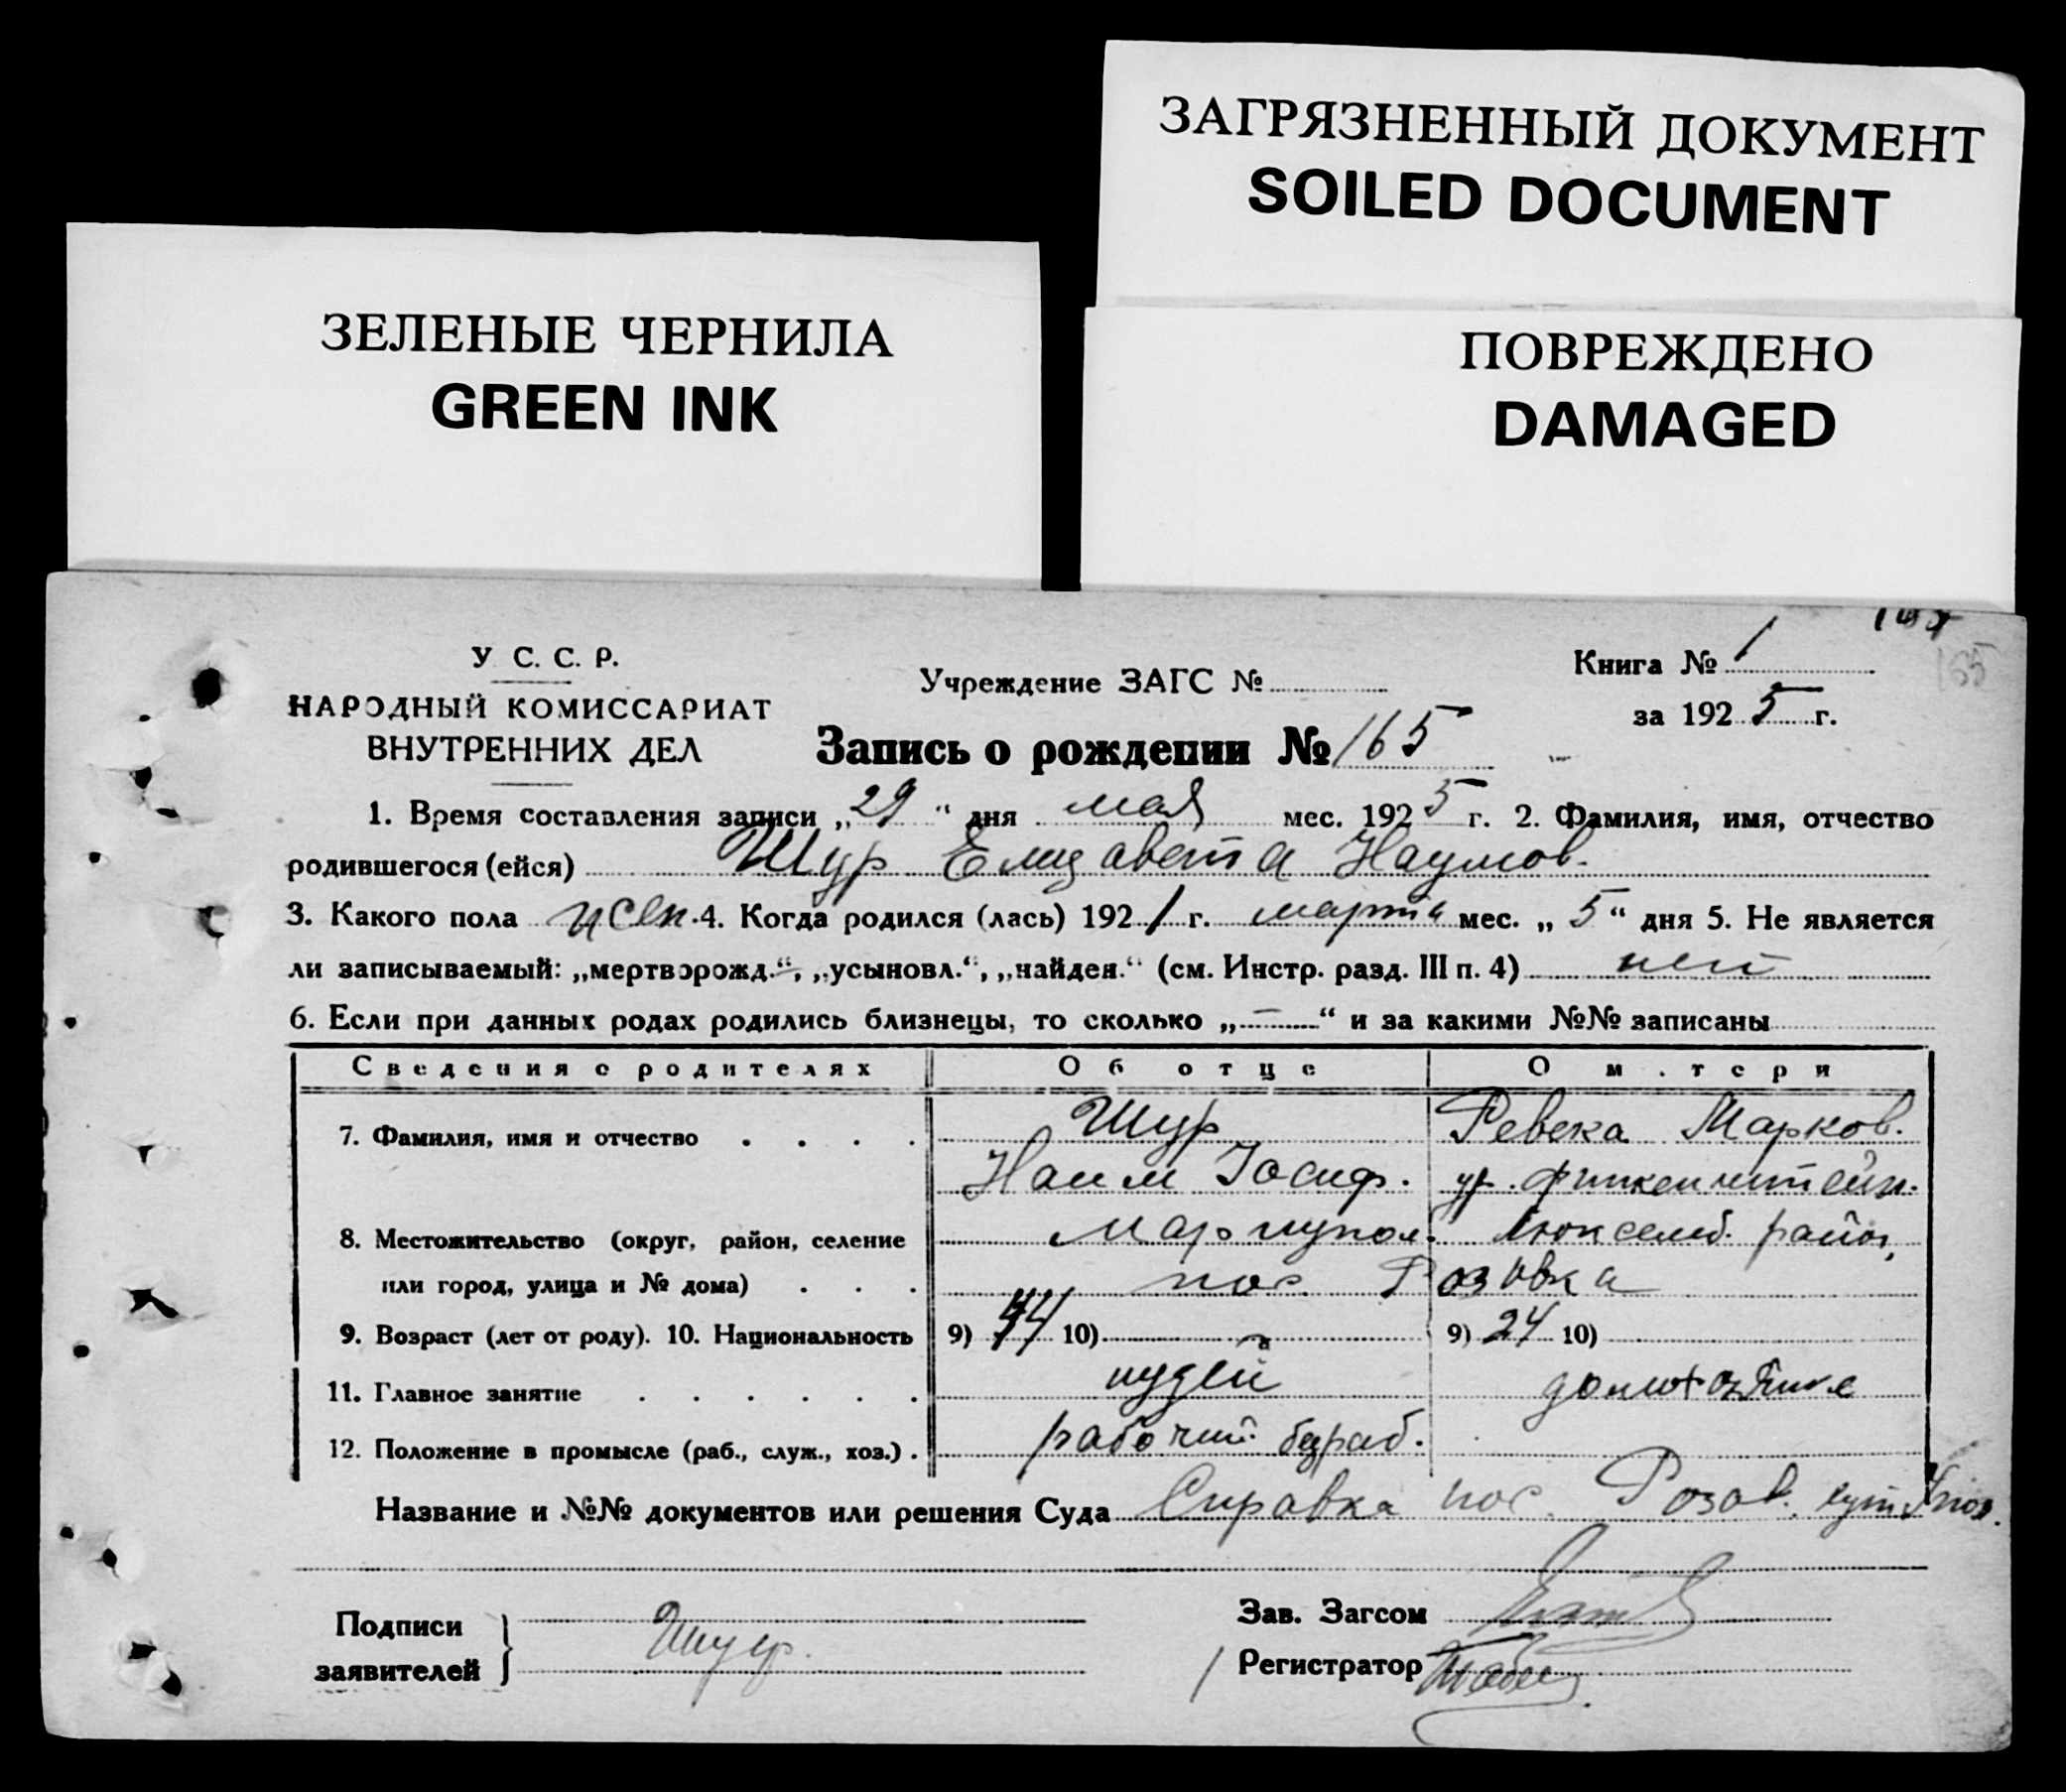 ЗАГРЯЗНЕННЫЙ ДОКУМЕНТ
SOILED DOCUMENT
ЗЕЛЕНЫЕ ЧЕРНИЛА
GREEN INK
ПОВРЕЖДЕНО
DAMAGED
165
У. С. С. Р.
НАРОДНЫЙ КОМИССАРИАТ
ВНУТРЕННИХ ДЕЛ
Учреждение ЗАГС №
Книга № 1
за 1925 г.
Запись о рождении № 165
1. Время составления записи „29“ дня мая мес. 1925 г. 2. Фамилия, имя, отчество
родившегося (ейся) Шур Елизавета Наумов.
3. Какого пола жен. 4. Когда родился (лась) 1921 г. марта мес. „5“ дня 5. Не является
ли записываемый: „мертворожд.“, „усыновл.“, „найден.“ (см. Инстр. разд. III п. 4) нет
6. Если при данных родах родились близнецы, то сколько „—“ и за какими №№ записаны
Сведения о родителях Об отце О матери
7. Фамилия, имя и отчество Шур Ревека Марков.
Наум Иосиф. ур. Финкенштейн.
8. Местожительство (округ, район, селение Мариупол. Люксемб. район,
или город, улица и № дома) пос. Розовка
9. Возраст (лет от роду). 10. Национальность 9) 44 10) 9) 24 10)
11. Главное занятие иудей домохозяйке
12. Положение в промысле (раб., служ., хоз.) рабочий безраб.
Название и №№ документов или решения Суда Справка пос. Розов.
Подписи
заявителей
Шур.
Зав. Загсом
Регистратор